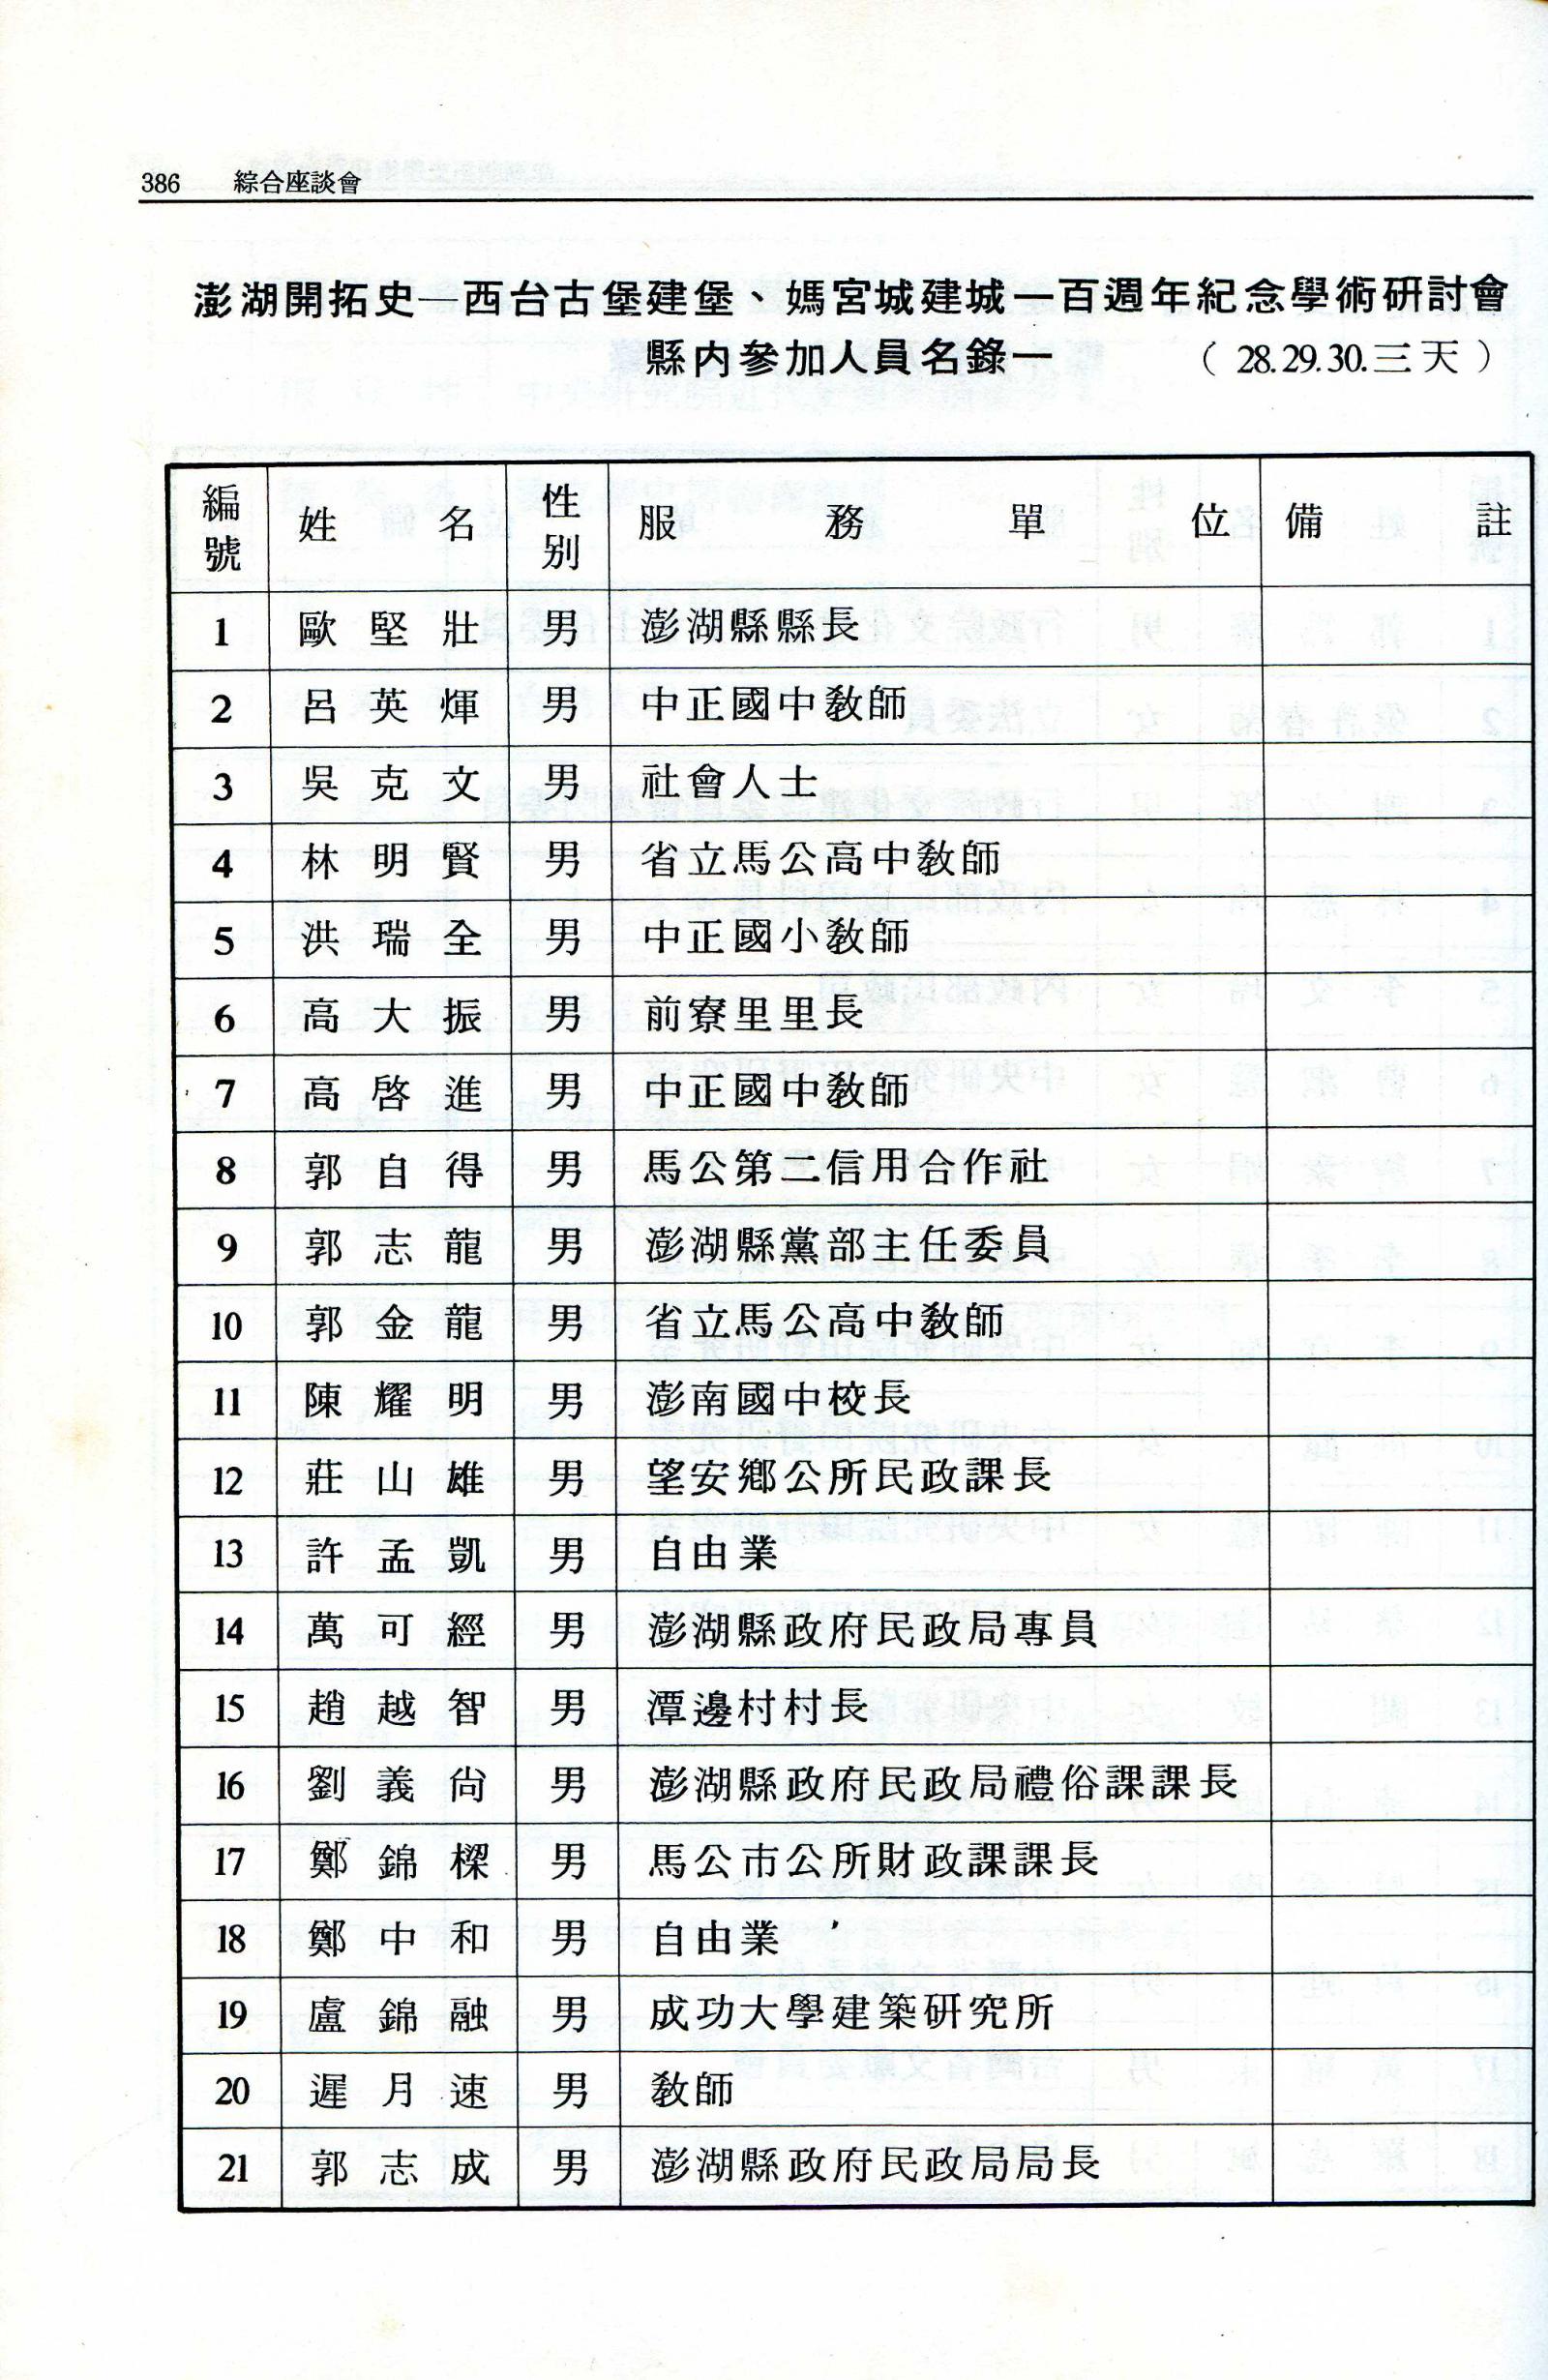 386 綜合座談會
澎湖開拓史—西台古堡建堡、媽宮城建城一百週年紀念學術研討會
縣内參加人員名錄一 （28.29.30.三天）
編號 姓名 性別 服務單位 備註
1 歐堅壯 男 澎湖縣縣長
2 呂英煇 男 中正國中教師
3 吳克文 男 社會人士
4 林明賢 男 省立馬公高中教師
5 洪瑞全 男 中正國小教師
6 高大振 男 前寮里里長
7 高啓進 男 中正國中教師
8 郭自得 男 馬公第二信用合作社
9 郭志龍 男 澎湖縣黨部主任委員
10 郭金龍 男 省立馬公高中教師
11 陳耀明 男 澎南國中校長
12 莊山雄 男 望安鄉公所民政課長
13 許孟凱 男 自由業
14 萬可經 男 澎湖縣政府民政局專員
15 趙越智 男 潭邊村村長
16 劉義尙 男 澎湖縣政府民政局禮俗課課長
17 鄭錦樑 男 馬公市公所財政課課長
18 鄭中和 男 自由業
19 盧錦融 男 成功大學建築研究所
20 遲月速 男 教師
21 郭志成 男 澎湖縣政府民政局局長